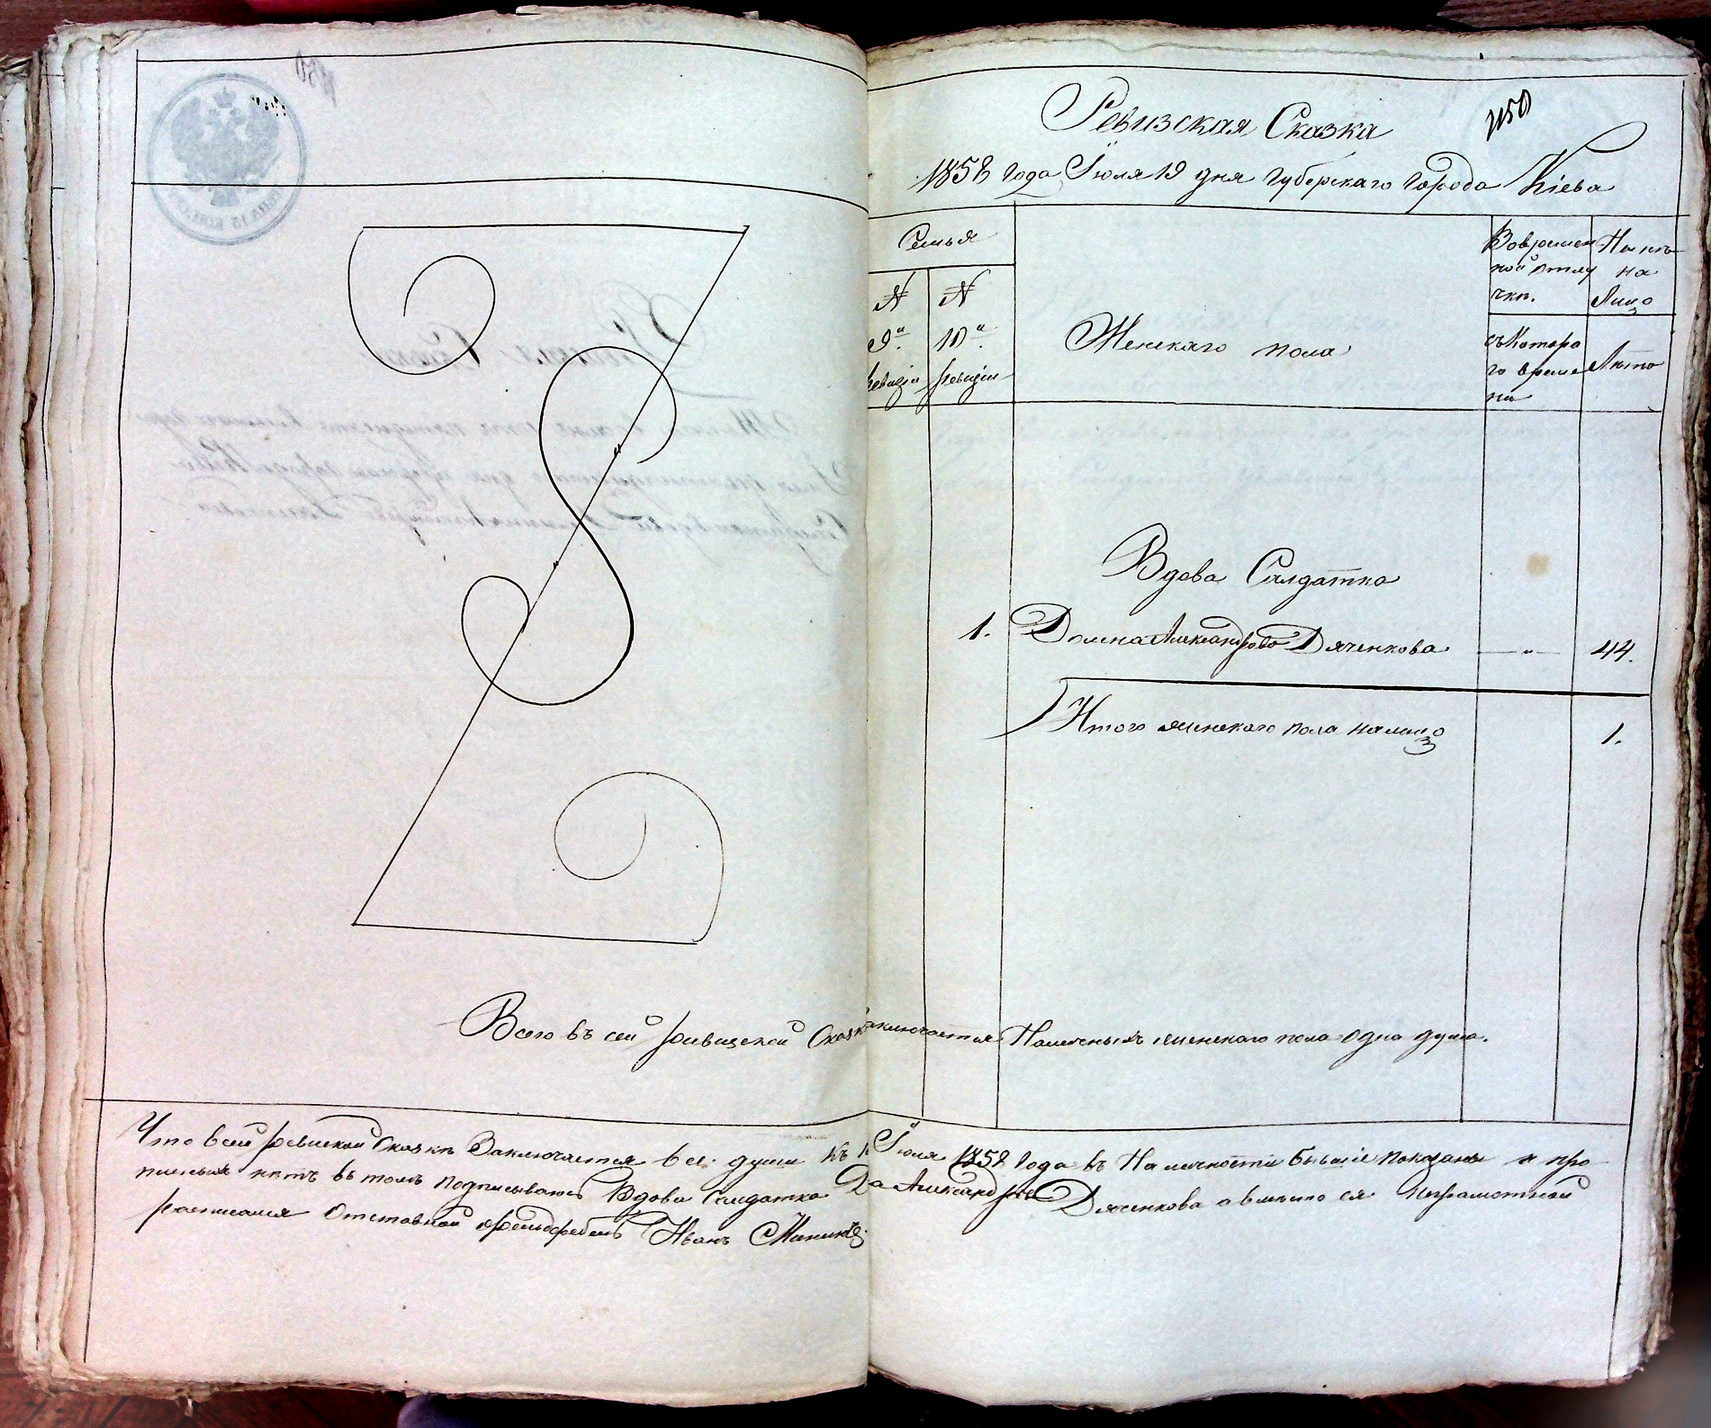 1150
Ревизская Сказка
1858 года Іюля 19 дня губерскаго города Кіева
Семья
№ 9й ревизіи
№ 10й ревизіи
Женскаго пола
Вовремен
ной отлу
чки.
съ Котора
го време
ни
На
на
Лицо
Лѣто
Вдова Салдатка
1. Домна Александрова Дяченкова — „ — 44.
Итого женскаго пола налицо 1.
Всего въ сей ревизской Сказкѣ заключается Наличныхъ женскаго пола одна душа.
Что всей ревиской Сказкѣ Заключается все души къ Іюля 1858 года въ Наличности бывшіе показаны и про
писныхъ нѣтъ въ томъ подписываюсь Вдова Салдатка Александрова Дяченкова а вмѣсто ея неграмотной
росписался Отставной фельдфебель Иванъ